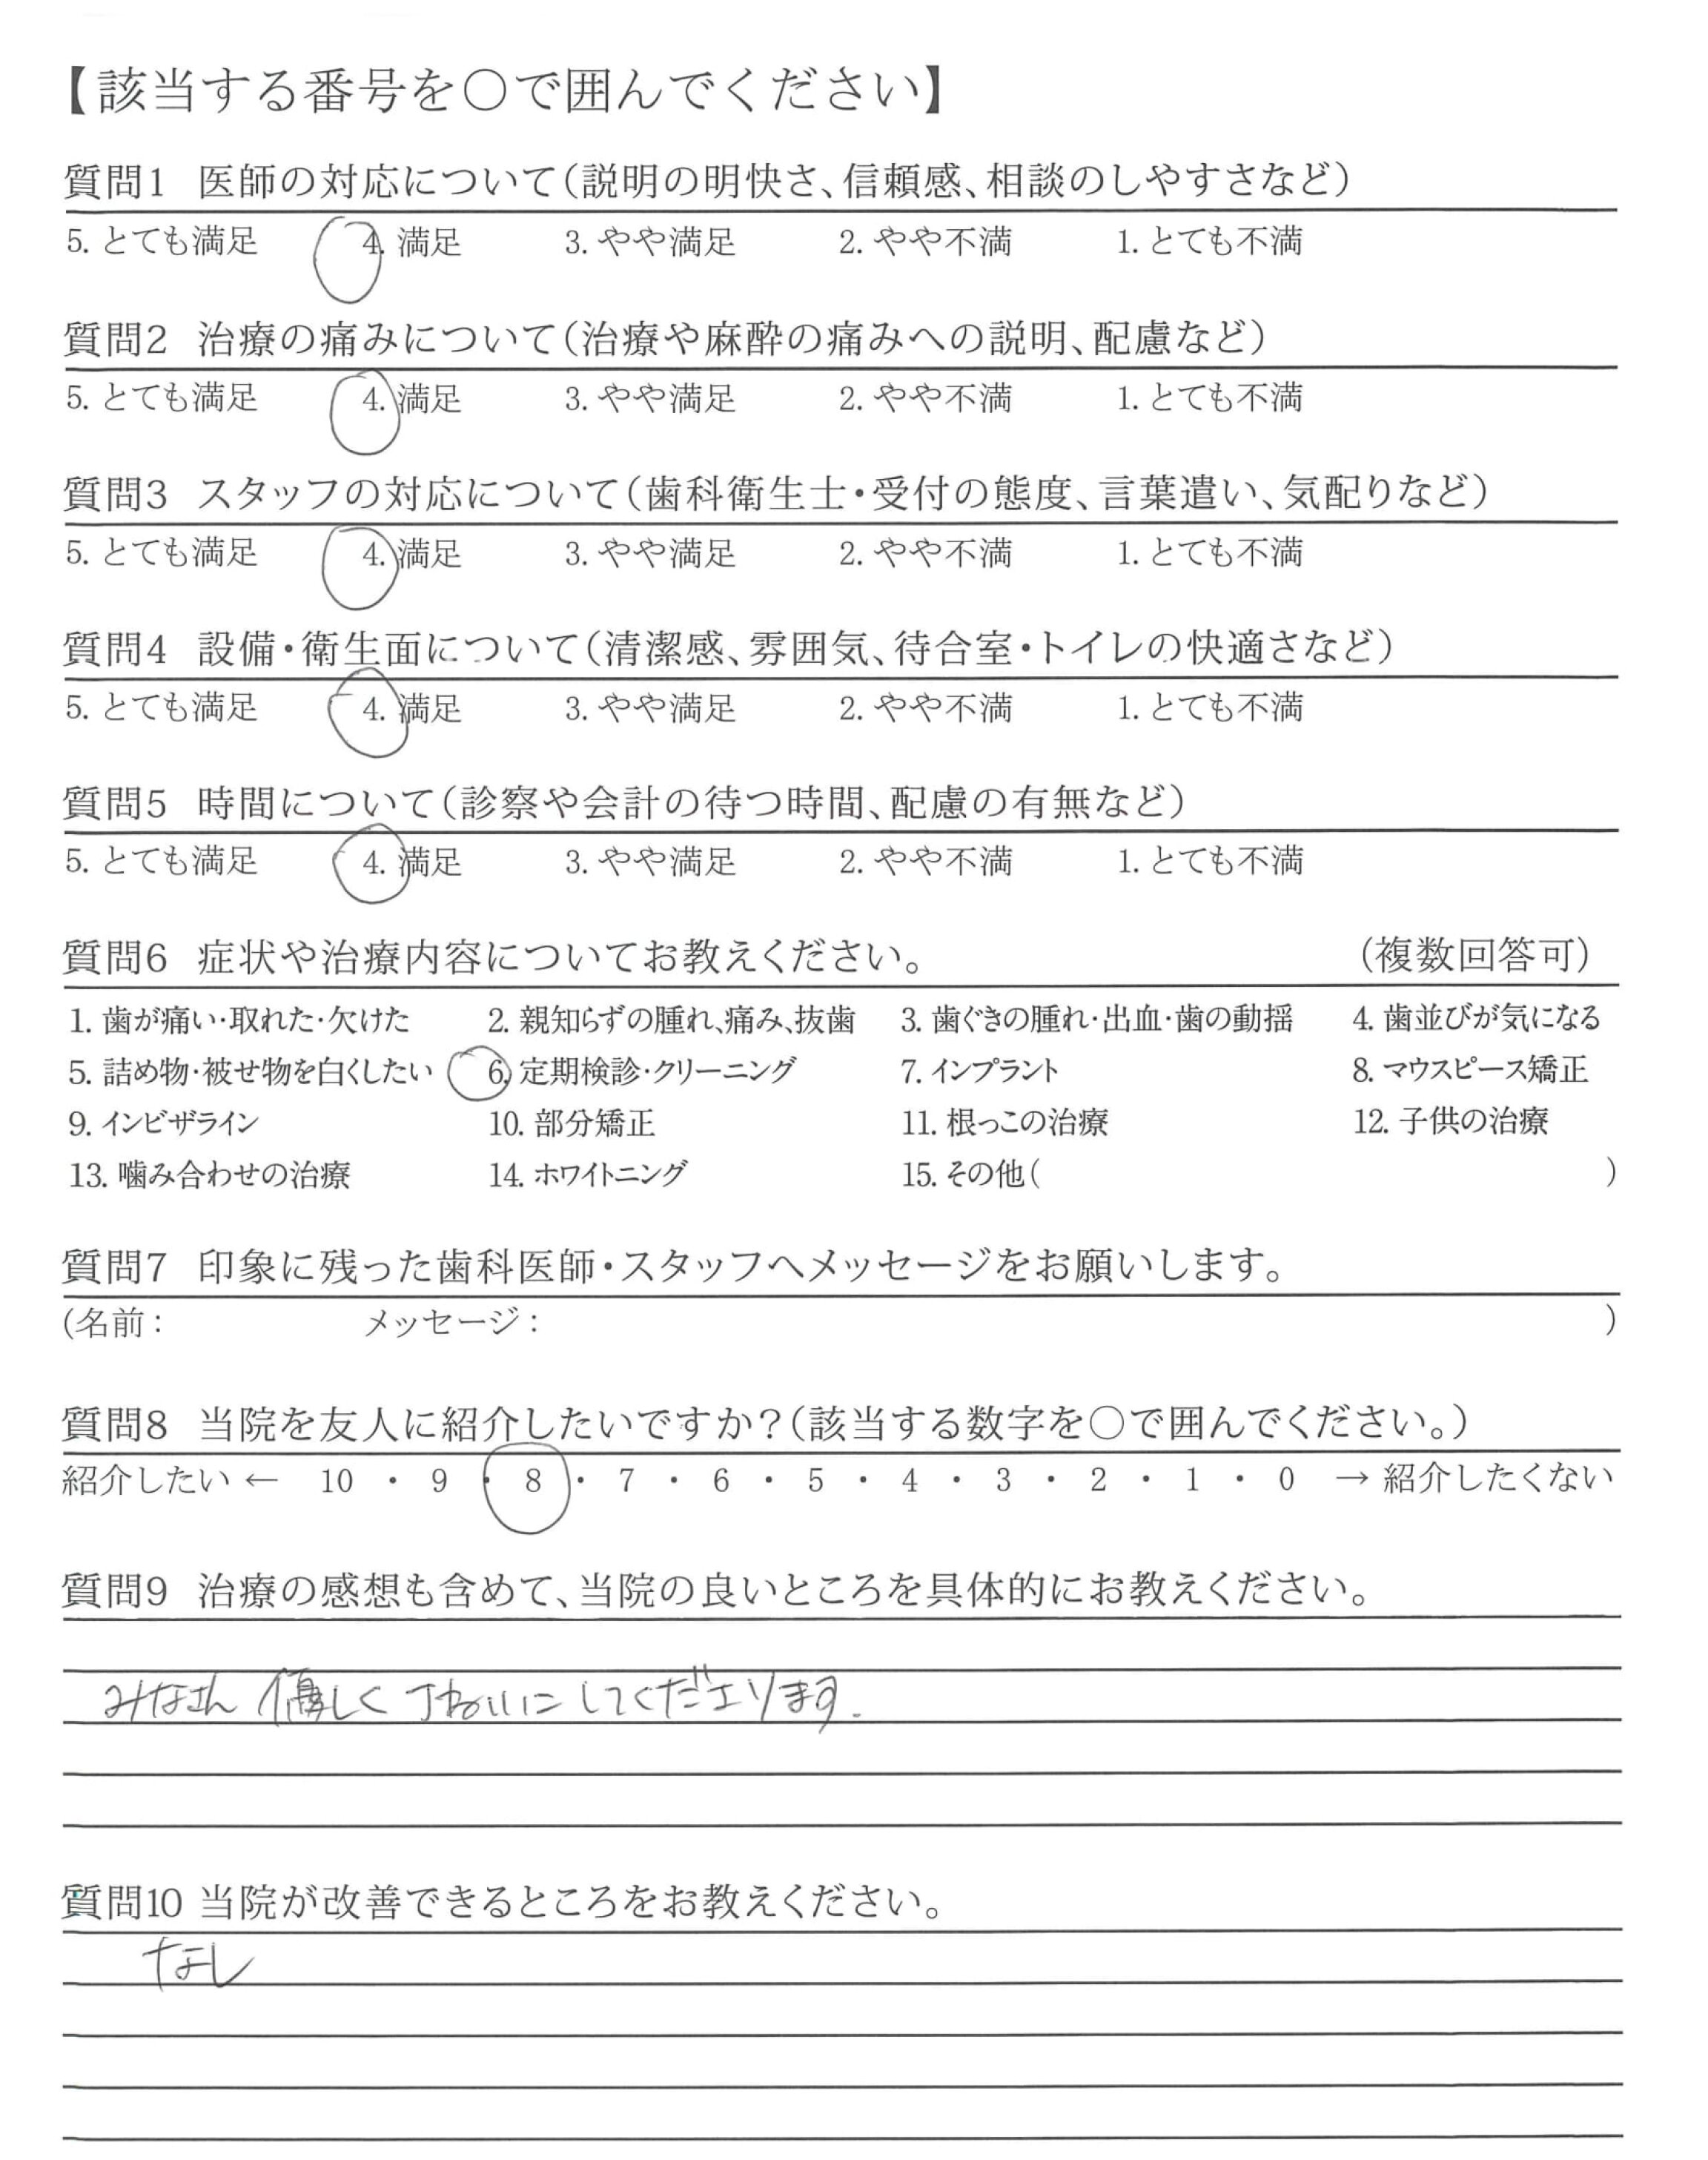 【該当する番号を○で囲んでください】
質問1 医師の対応について(説明の明快さ、信頼感、相談のしやすさなど)
5. とても満足 4. 満足 3. やや満足 2. やや不満 1. とても不満
質問2 治療の痛みについて(治療や麻酔の痛みへの説明、配慮など)
5. とても満足 4. 満足 3. やや満足 2. やや不満 1. とても不満
質問3 スタッフの対応について(歯科衛生士・受付の態度、言葉遣い、気配りなど)
5. とても満足 4. 満足 3. やや満足 2. やや不満 1. とても不満
質問4 設備・衛生面について(清潔感、雰囲気、待合室・トイレの快適さなど)
5. とても満足 4. 満足 3. やや満足 2. やや不満 1. とても不満
質問5 時間について(診察や会計の待つ時間、配慮の有無など)
5. とても満足 4. 満足 3. やや満足 2. やや不満 1. とても不満
質問6 症状や治療内容についてお教えください。 (複数回答可)
1. 歯が痛い・取れた・欠けた 2. 親知らずの腫れ、痛み、抜歯 3. 歯ぐきの腫れ・出血・歯の動揺 4. 歯並びが気になる
5. 詰め物・被せ物を白くしたい 6. 定期検診・クリーニング 7. インプラント 8. マウスピース矯正
9. インビザライン 10. 部分矯正 11. 根っこの治療 12. 子供の治療
13. 噛み合わせの治療 14. ホワイトニング 15. その他( )
質問7 印象に残った歯科医師・スタッフへメッセージをお願いします。
(名前: メッセージ: )
質問8 当院を友人に紹介したいですか？(該当する数字を○で囲んでください。)
紹介したい ← 10 ・ 9 ・ 8 ・ 7 ・ 6 ・ 5 ・ 4 ・ 3 ・ 2 ・ 1 ・ 0 → 紹介したくない
質問9 治療の感想も含めて、当院の良いところを具体的にお教えください。
みなさん 優しく ていねいにしてくださります.
質問10 当院が改善できるところをお教えください。
なし